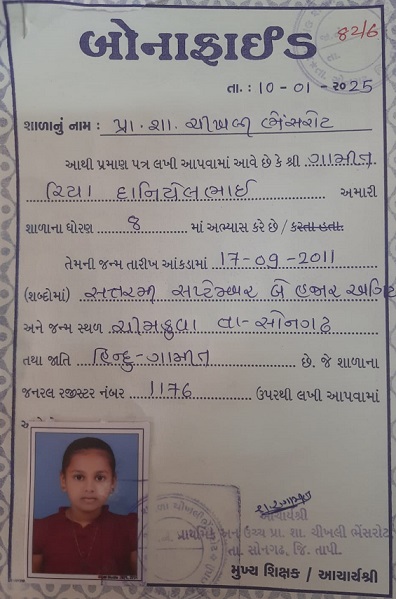 બોનાફાઈડ
8216
તા. : 10-01-2025
શાળાનું નામ : પ્રા. શા. ચીખલી ભેંસરોટ
આથી પ્રમાણ પત્ર લખી આપવામાં આવે છે કે શ્રી ગામીત
રિયા દાનિયેલભાઈ અમારી
શાળાના ધોરણ 8 માં અભ્યાસ કરે છે / કરતા હતા.
તેમની જન્મ તારીખ આંકડામાં 17-09-2011
(શબ્દોમાં) સત્તરમી સપ્ટેમ્બર બે હજાર અગિ
અને જન્મ સ્થળ ચીમકુવા તા-સોનગઢ
તથા જાતિ હિન્દુ-ગામીત છે. જે શાળાના
જનરલ રજીસ્ટર નંબર 1176 ઉપરથી લખી આપવામાં
આચાર્યશ્રી
પ્રાથમિક અને ઉચ્ચ પ્રા. શા. ચીખલી ભેંસરોટ
તા. સોનગઢ, જિ. તાપી.
મુખ્ય શિક્ષક / આચાર્યશ્રી